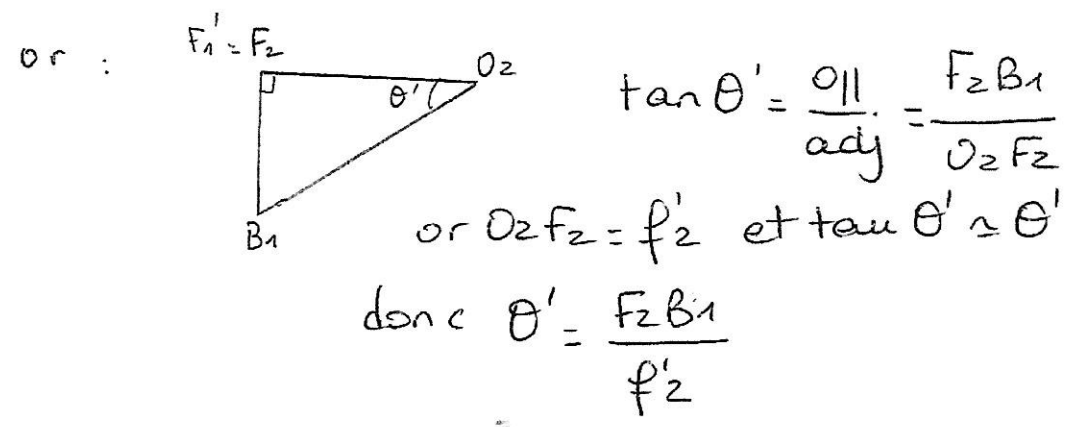 or :
F₁' = F₂
O₂
θ'
B₁
tan θ' = opp/adj = F₂B₁/O₂F₂
or O₂F₂ = f'₂ et tan θ' ≃ θ'
donc θ' = F₂B₁/f'₂